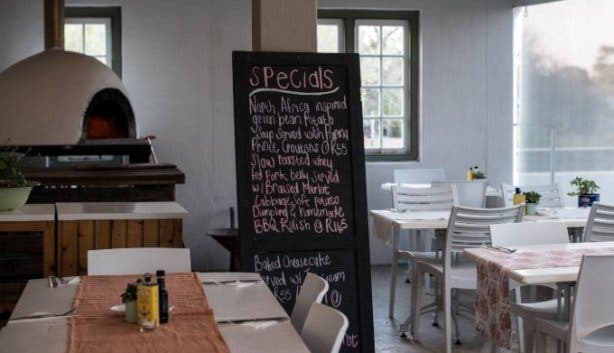 Specials
North Africa inspired
green bean potato
Soup served with
Croutons @ R55
Slow roasted whey
fed Pork belly served
w/ Braised
Cabbage potato
Dumpling & homemade
BBQ Relish @ R145
Baked Cheesecake